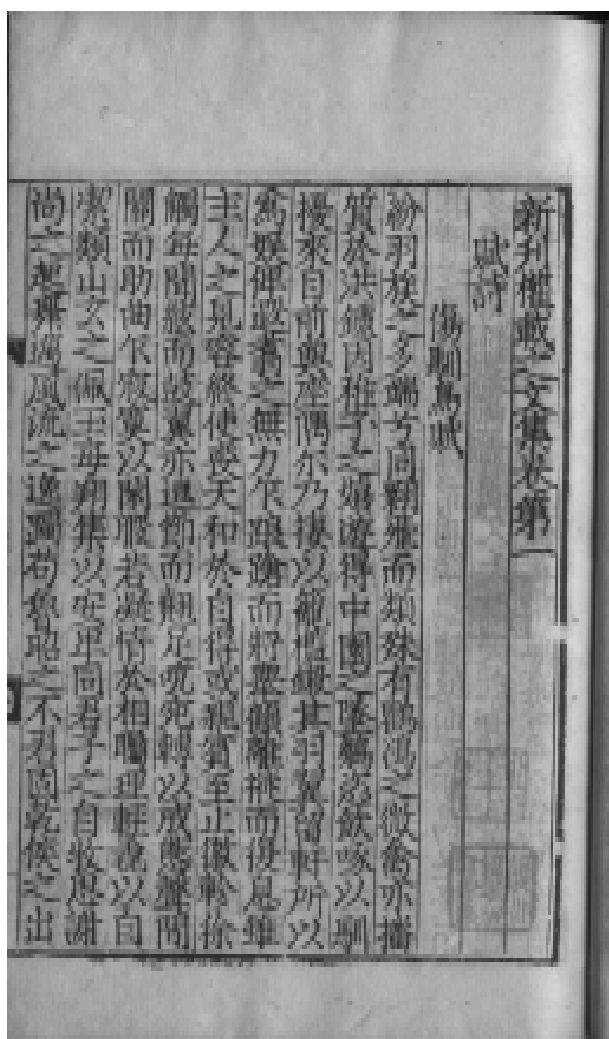 新刊權載之文集卷第一
賦詩
傷馴鳥賦
紛羽族之多端兮同翺飛而類殊有鸜鴝之微禽亦播
質於洪鑪因稚子之嬉遊得中園之墜鷇恣飲啄以馴
擾來自前與座隅尔乃棲以籠檻鎩其羽翼留軒所以
為娛俾設翥之無力乍踉蹡而將舉顧離褷而復息雖
主人之見容終使喪天和於自得或親賓至止徽軫徐
觸每聞絃而鼓翼亦遇節而翹足吭宛轉以成態聲間
關而助曲乍寂寞以閑暇若凝情於相矚理輕毳以自
潔類山玄之佩玉每翔集以安平同君子之自牧思謝
尚之起舞溢風流之逸躅苟魯昭之不君固乾侯之出